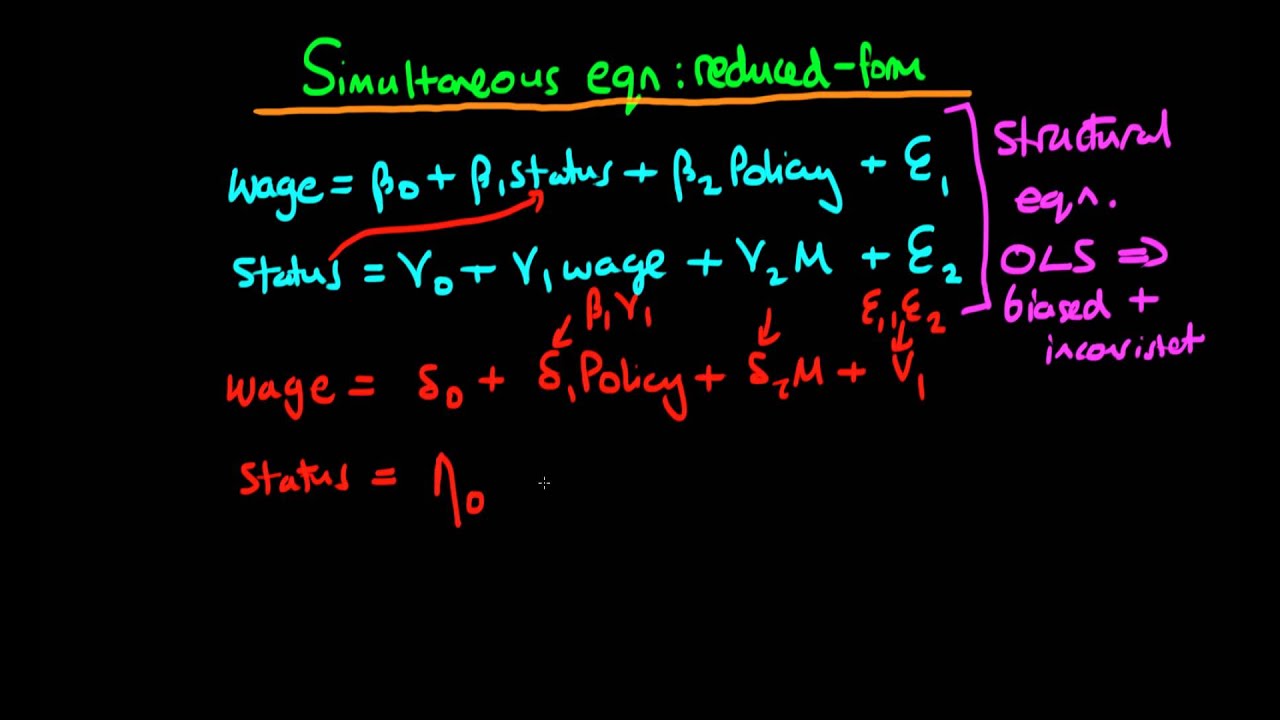 Simultaneous eqn: reduced-form
wage = β0 + β1status + β2 Policy + ε1
Status = γ0 + γ1 wage + γ2 M + ε2
structural
eqn.
OLS ⇒
biased +
inconsistet
β1γ1
ε1, ε2
wage = δ0 + δ1Policy + δ2M + V1
Status = η0